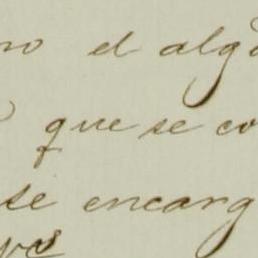 no el alg
que se co
se encarg